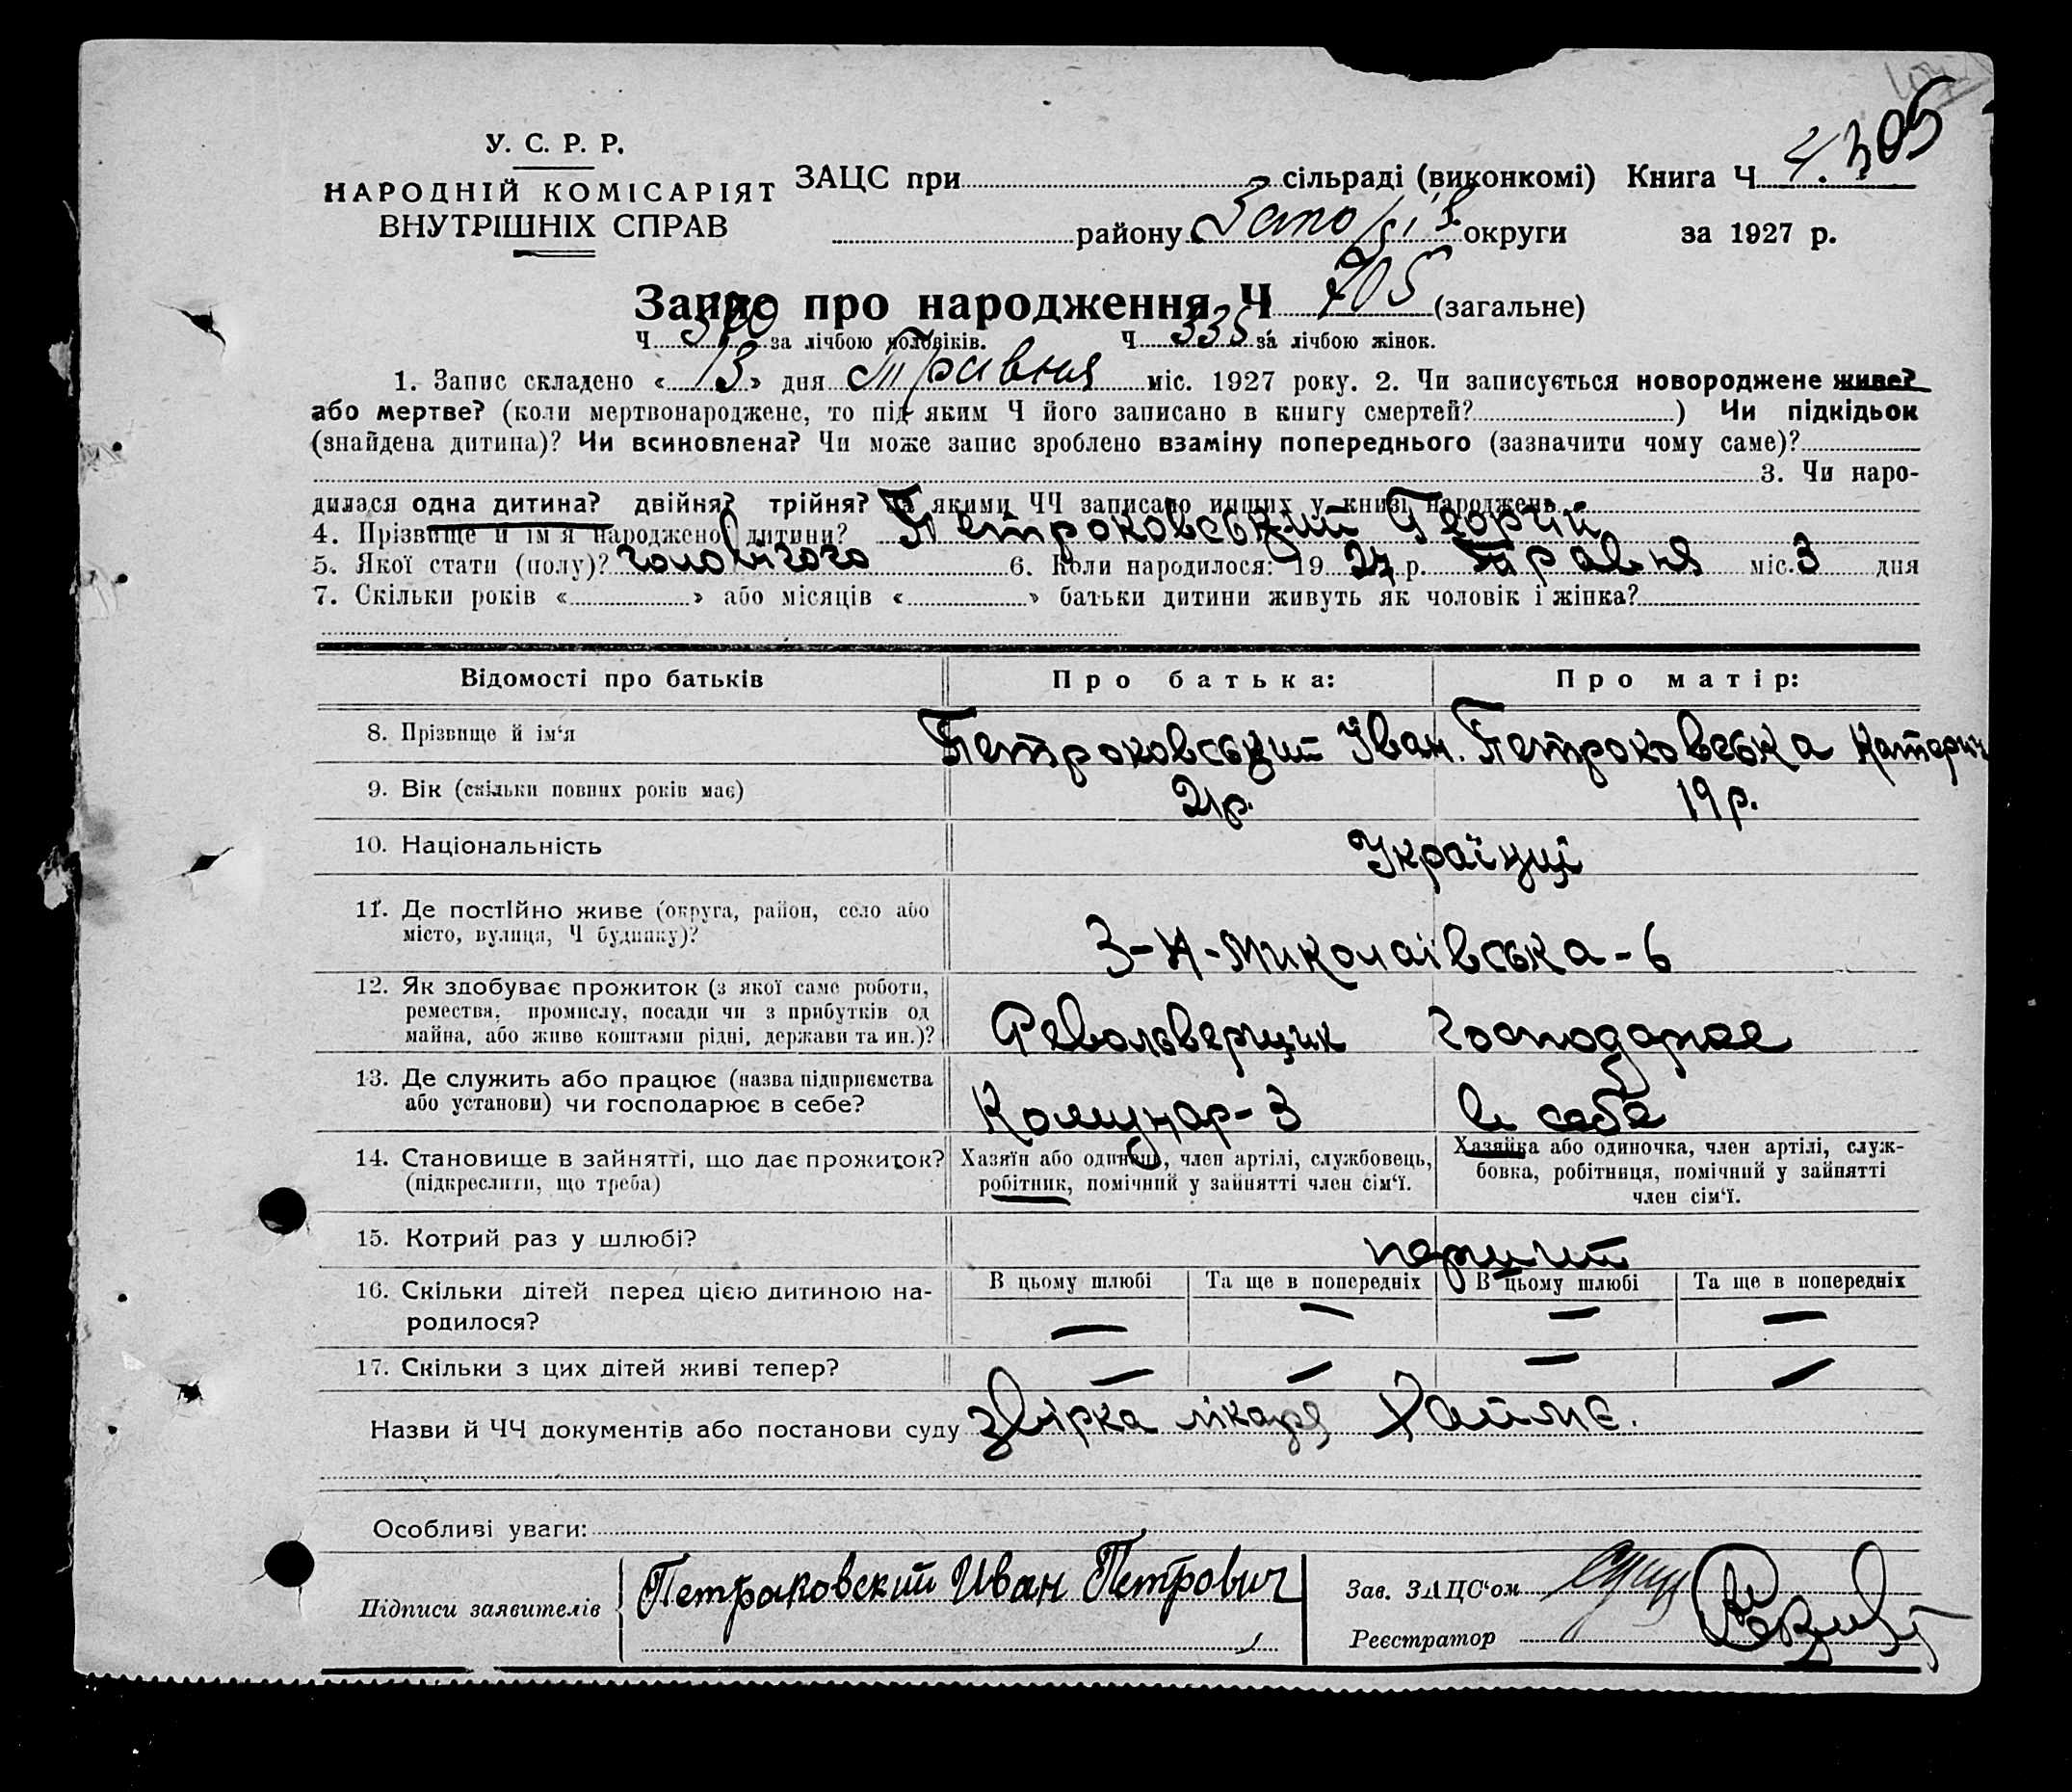 У. С. Р. Р.
НАРОДНІЙ КОМІСАРІЯТ
ВНУТРІШНІХ СПРАВ
ЗАЦС при сільраді (виконкомі) Книга Ч 4. 305
району Запоріз округи за 1927 р.
Запис про народження Ч 705 (загальне)
Ч 370 за лічбою чоловіків. Ч 335 за лічбою жінок.
1. Запис складено « 13 » дня Травня міс. 1927 року. 2. Чи записується новороджене живе?
або мертве? (коли мертвонароджене, то під яким Ч його записано в книгу смертей? ) Чи підкідьок
(знайдена дитина)? Чи всиновлена? Чи може запис зроблено взаміну попереднього (зазначити чому саме)?
3. Чи наро-
дилася одна дитина? двійня? трійня? За якими ЧЧ записано инших у книзі народжень
4. Прізвище й ім'я народженої дитини? Петроковський Георгій
5. Якої стати (полу)? чоловічого 6. Коли народилося: 1927 р. Травня міс. 3 дня
7. Скільки років « » або місяців « » батьки дитини живуть як чоловік і жінка?
Відомості про батьків Про батька: Про матір:
8. Прізвище й ім'я Петроковський Іван. Петроковська Катерин
9. Вік (скільки повних років має) 21р. 19р.
10. Національність Українці
11. Де постійно живе (округа, район, село або
місто, вулиця, Ч будинку)? З-Н-Миколаївська-6
12. Як здобуває прожиток (з якої саме роботи,
ремества, промислу, посади чи з прибутків од
майна, або живе коштами рідні, держави та ин.)? Револьверщик Господарює
13. Де служить або працює (назва підприємства
або установи) чи господарює в себе? Комунар-З в себе
14. Становище в зайнятті, що дає прожиток?
(підкреслити, що треба)
Хазяїн або одинець, член артілі, службовець,
робітник, помічний у зайнятті член сім'ї.
Хазяйка або одиночка, член артілі, служ-
бовка, робітниця, помічний у зайнятті
член сім'ї.
15. Котрий раз у шлюбі? перший
16. Скільки дітей перед цією дитиною на-
родилося?
В цьому шлюбі Та ще в попередніх В цьому шлюбі Та ще в попередніх
— — — —
17. Скільки з цих дітей живі тепер? — — — —
Назви й ЧЧ документів або постанови суду звірка лікаря
Особливі уваги:
Підписи заявителів Петраковский Иван Петрович
Зав. ЗАЦС'ом
Реєстратор